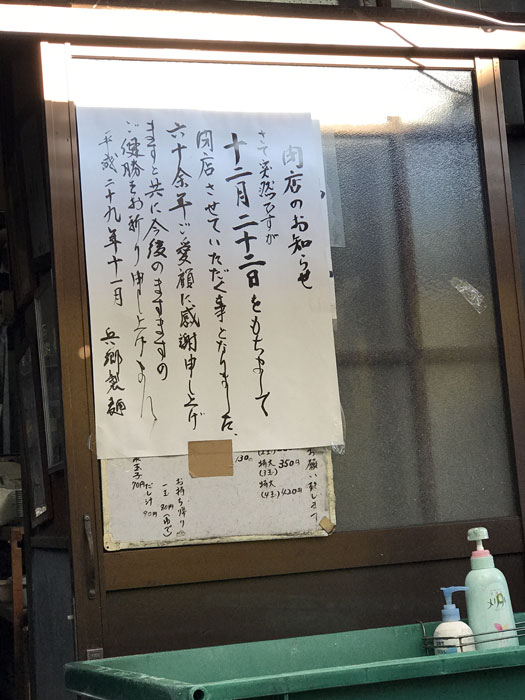 閉店のお知らせ
さて突然ですが
十二月二十二日をもちまして
閉店させていただく事となりました。
六十余年ご愛顧に感謝申し上げ
ますと共に今後のますますの
ご健勝をお祈り申し上げ
平成二十九年十一月 兵郷製麺
お願い致します
350円
特大
(3玉)
特大
(4玉) 420円
130円
お持ち帰り
一玉 80円(ゆで)
だし汁
90円
玉子
70円
メリット